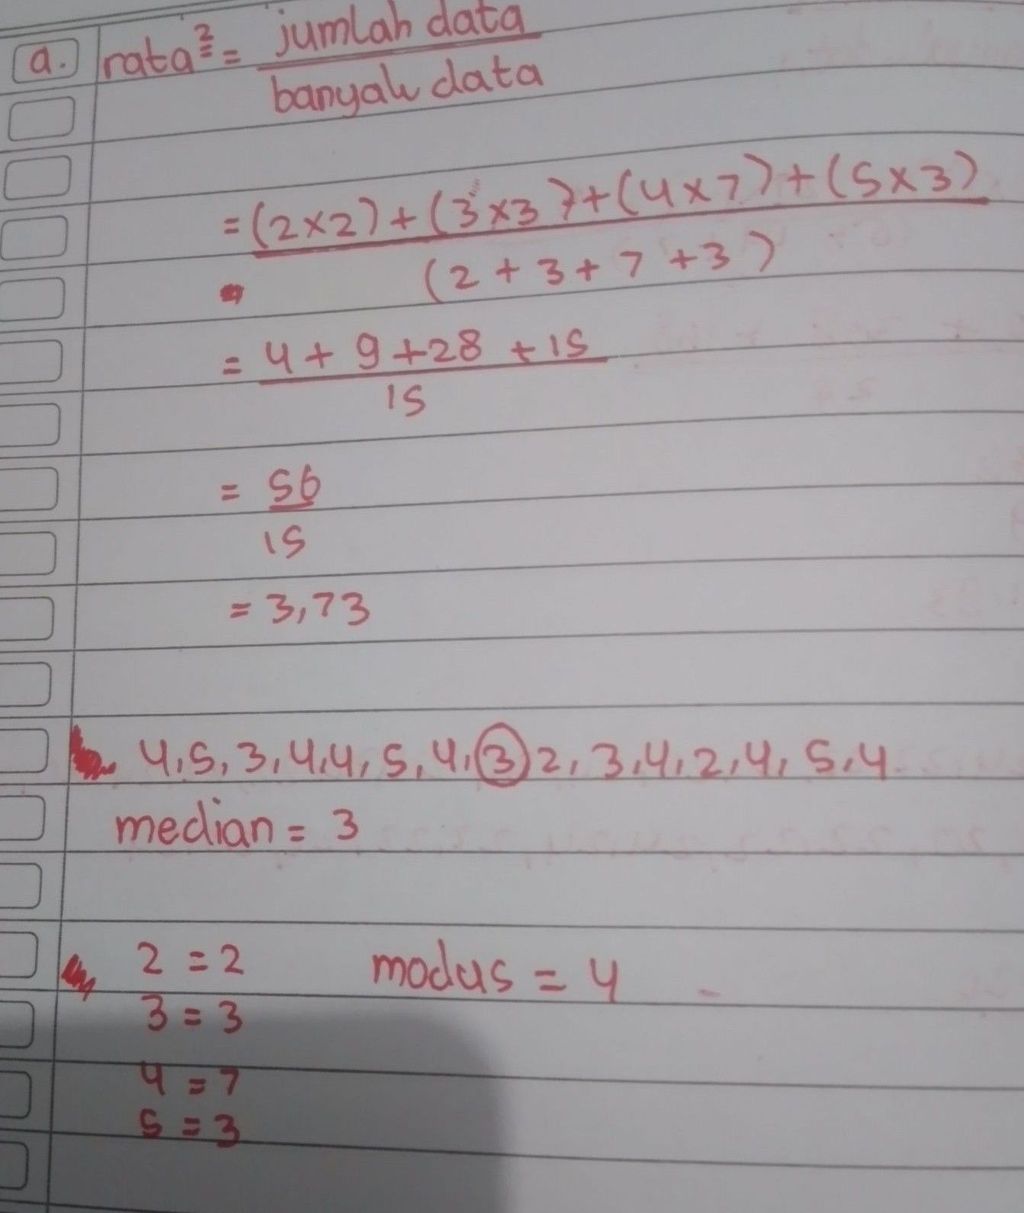 a. rata²= = jumlah data
banyak data
= (2×2) + (3×3) + (4×7) + (5×3)
(2 + 3 + 7 + 3)
= 4 + 9 + 28 + 15
15
= 56
15
= 3,73
4, 5, 3, 4, 4, 5, 4, 3 2, 3, 4, 2, 4, 5, 4
median = 3
2 = 2 modus = 4
3 = 3
4 = 7
5 = 3